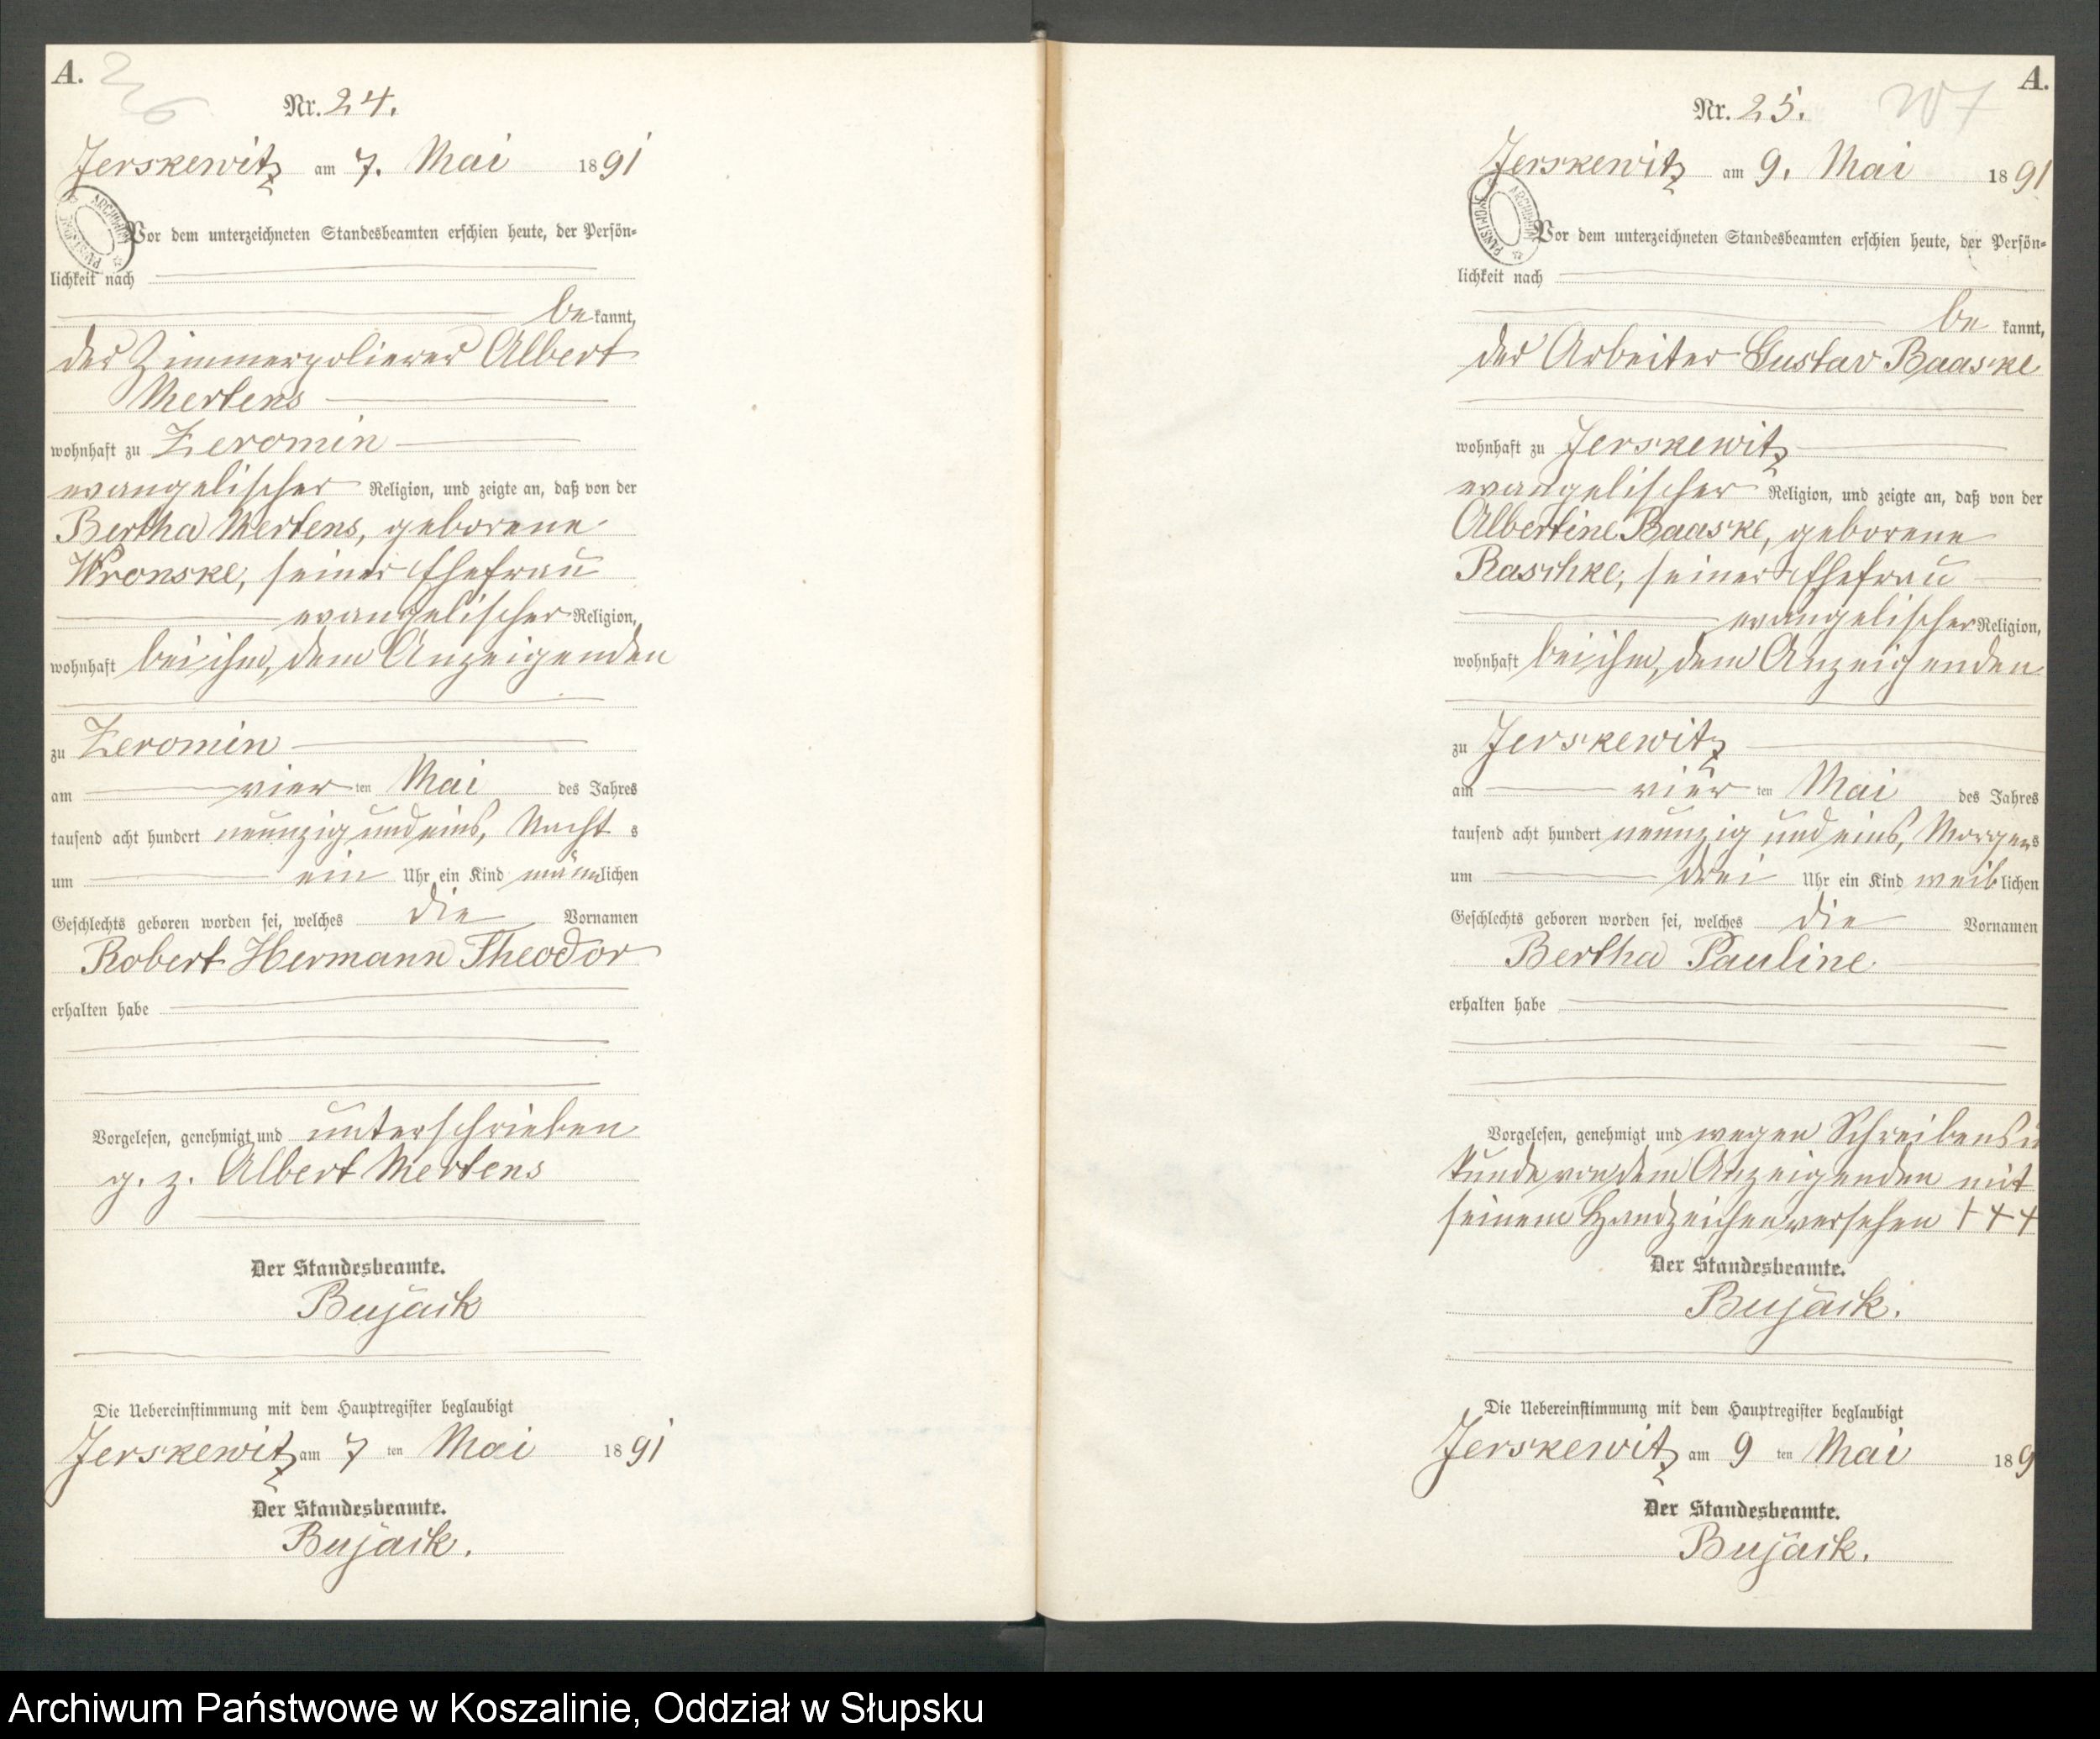 A.
26
Nr. 24.
Jerskewitz am 7. Mai 1891
Vor dem unterzeichneten Standesbeamten erschien heute, der Persön-
lichkeit nach
be kannt,
der Zimmerpolierer Albert
Mertens
wohnhaft zu Zeromin
evangelischer Religion, und zeigte an, daß von der
Bertha Mertens, geborene
Wronske, seiner Ehefrau
evangelischer Religion,
wohnhaft bei ihm, dem Anzeigenden
zu Zeromin
am vier ten Mai des Jahres
tausend acht hundert neunzig und eins, Nacht s
um ein Uhr ein Kind männlichen
Geschlechts geboren worden sei, welches die Vornamen
Robert Hermann Theodor
erhalten habe
Vorgelesen, genehmigt und unterschrieben
g. z. Albert Mertens
Der Standesbeamte.
Bujack
Die Uebereinstimmung mit dem Hauptregister beglaubigt
Jerskewitz am 7 ten Mai 1891
Der Standesbeamte.
Bujack.
A.
Nr. 25.
Jerskewitz am 9. Mai 1891
ARCHIWUM PAŃSTWOWE
Vor dem unterzeichneten Standesbeamten erschien heute, der Persön-
lichkeit nach
be kannt,
der Arbeiter Gustav Baaske
wohnhaft zu Jerskewitz
evangelischer Religion, und zeigte an, daß von der
Albertine Baaske, geborene
Raschke, seiner Ehefrau
evangelischer Religion,
wohnhaft bei ihm, dem Anzeigenden
zu Jerskewitz
am vier ten Mai des Jahres
tausend acht hundert neunzig und eins, Morgens
um drei Uhr ein Kind weiblichen
Geschlechts geboren worden sei, welches die Vornamen
Bertha Pauline
erhalten habe
Vorgelesen, genehmigt und wegen Schreibensun
kunde von dem Anzeigenden mit
seinem Handzeichen versehen + + +
Der Standesbeamte.
Bujack.
Die Uebereinstimmung mit dem Hauptregister beglaubigt
Jerskewitz am 9 ten Mai 189
Der Standesbeamte.
Bujack.
Archiwum Państwowe w Koszalinie, Oddział w Słupsku